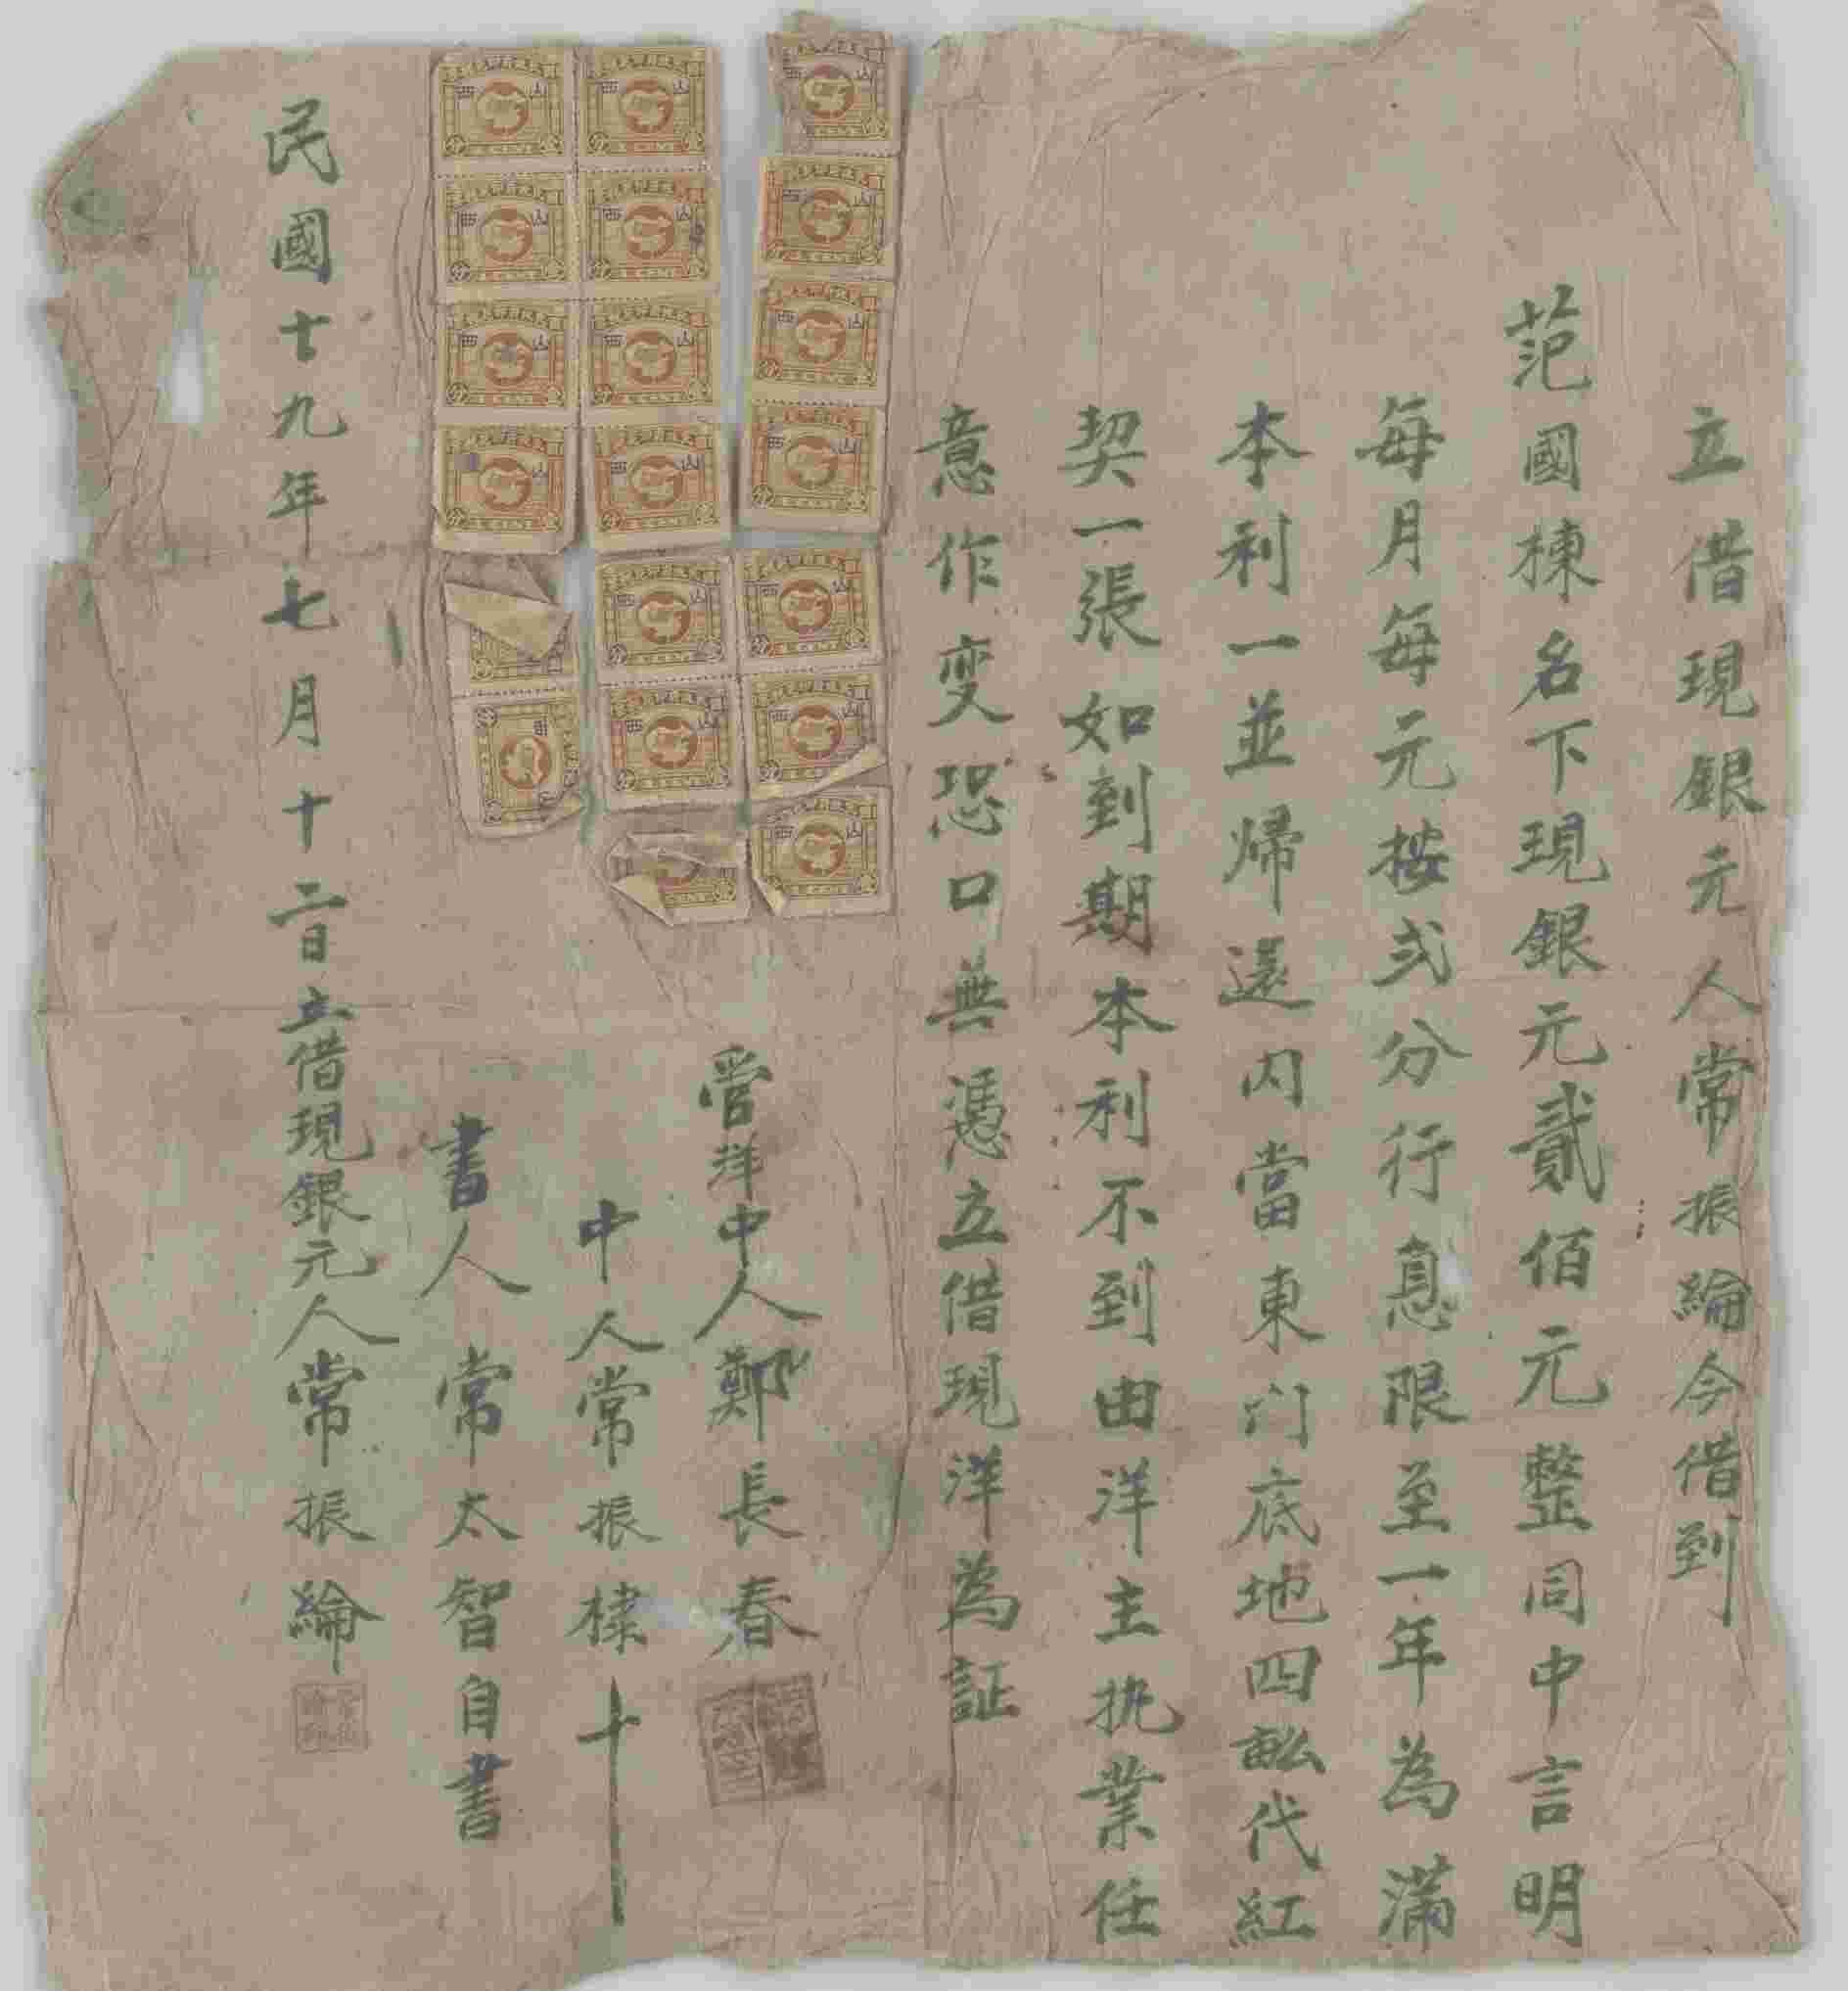 立借現銀元人常振綸今借到
范國棟名下現銀元貳佰元整同中言明
每月每元按弍分行息限至一年為滿
本利一並歸還内當東门底地四畆代紅
契一張如到期本利不到由洋主执業任
意作变恐口無憑立借現洋為証
管洋中人鄭長春
中人常振棣十
書人常太智自書
民國十九年七月十二日立借現銀元人常振綸
山西